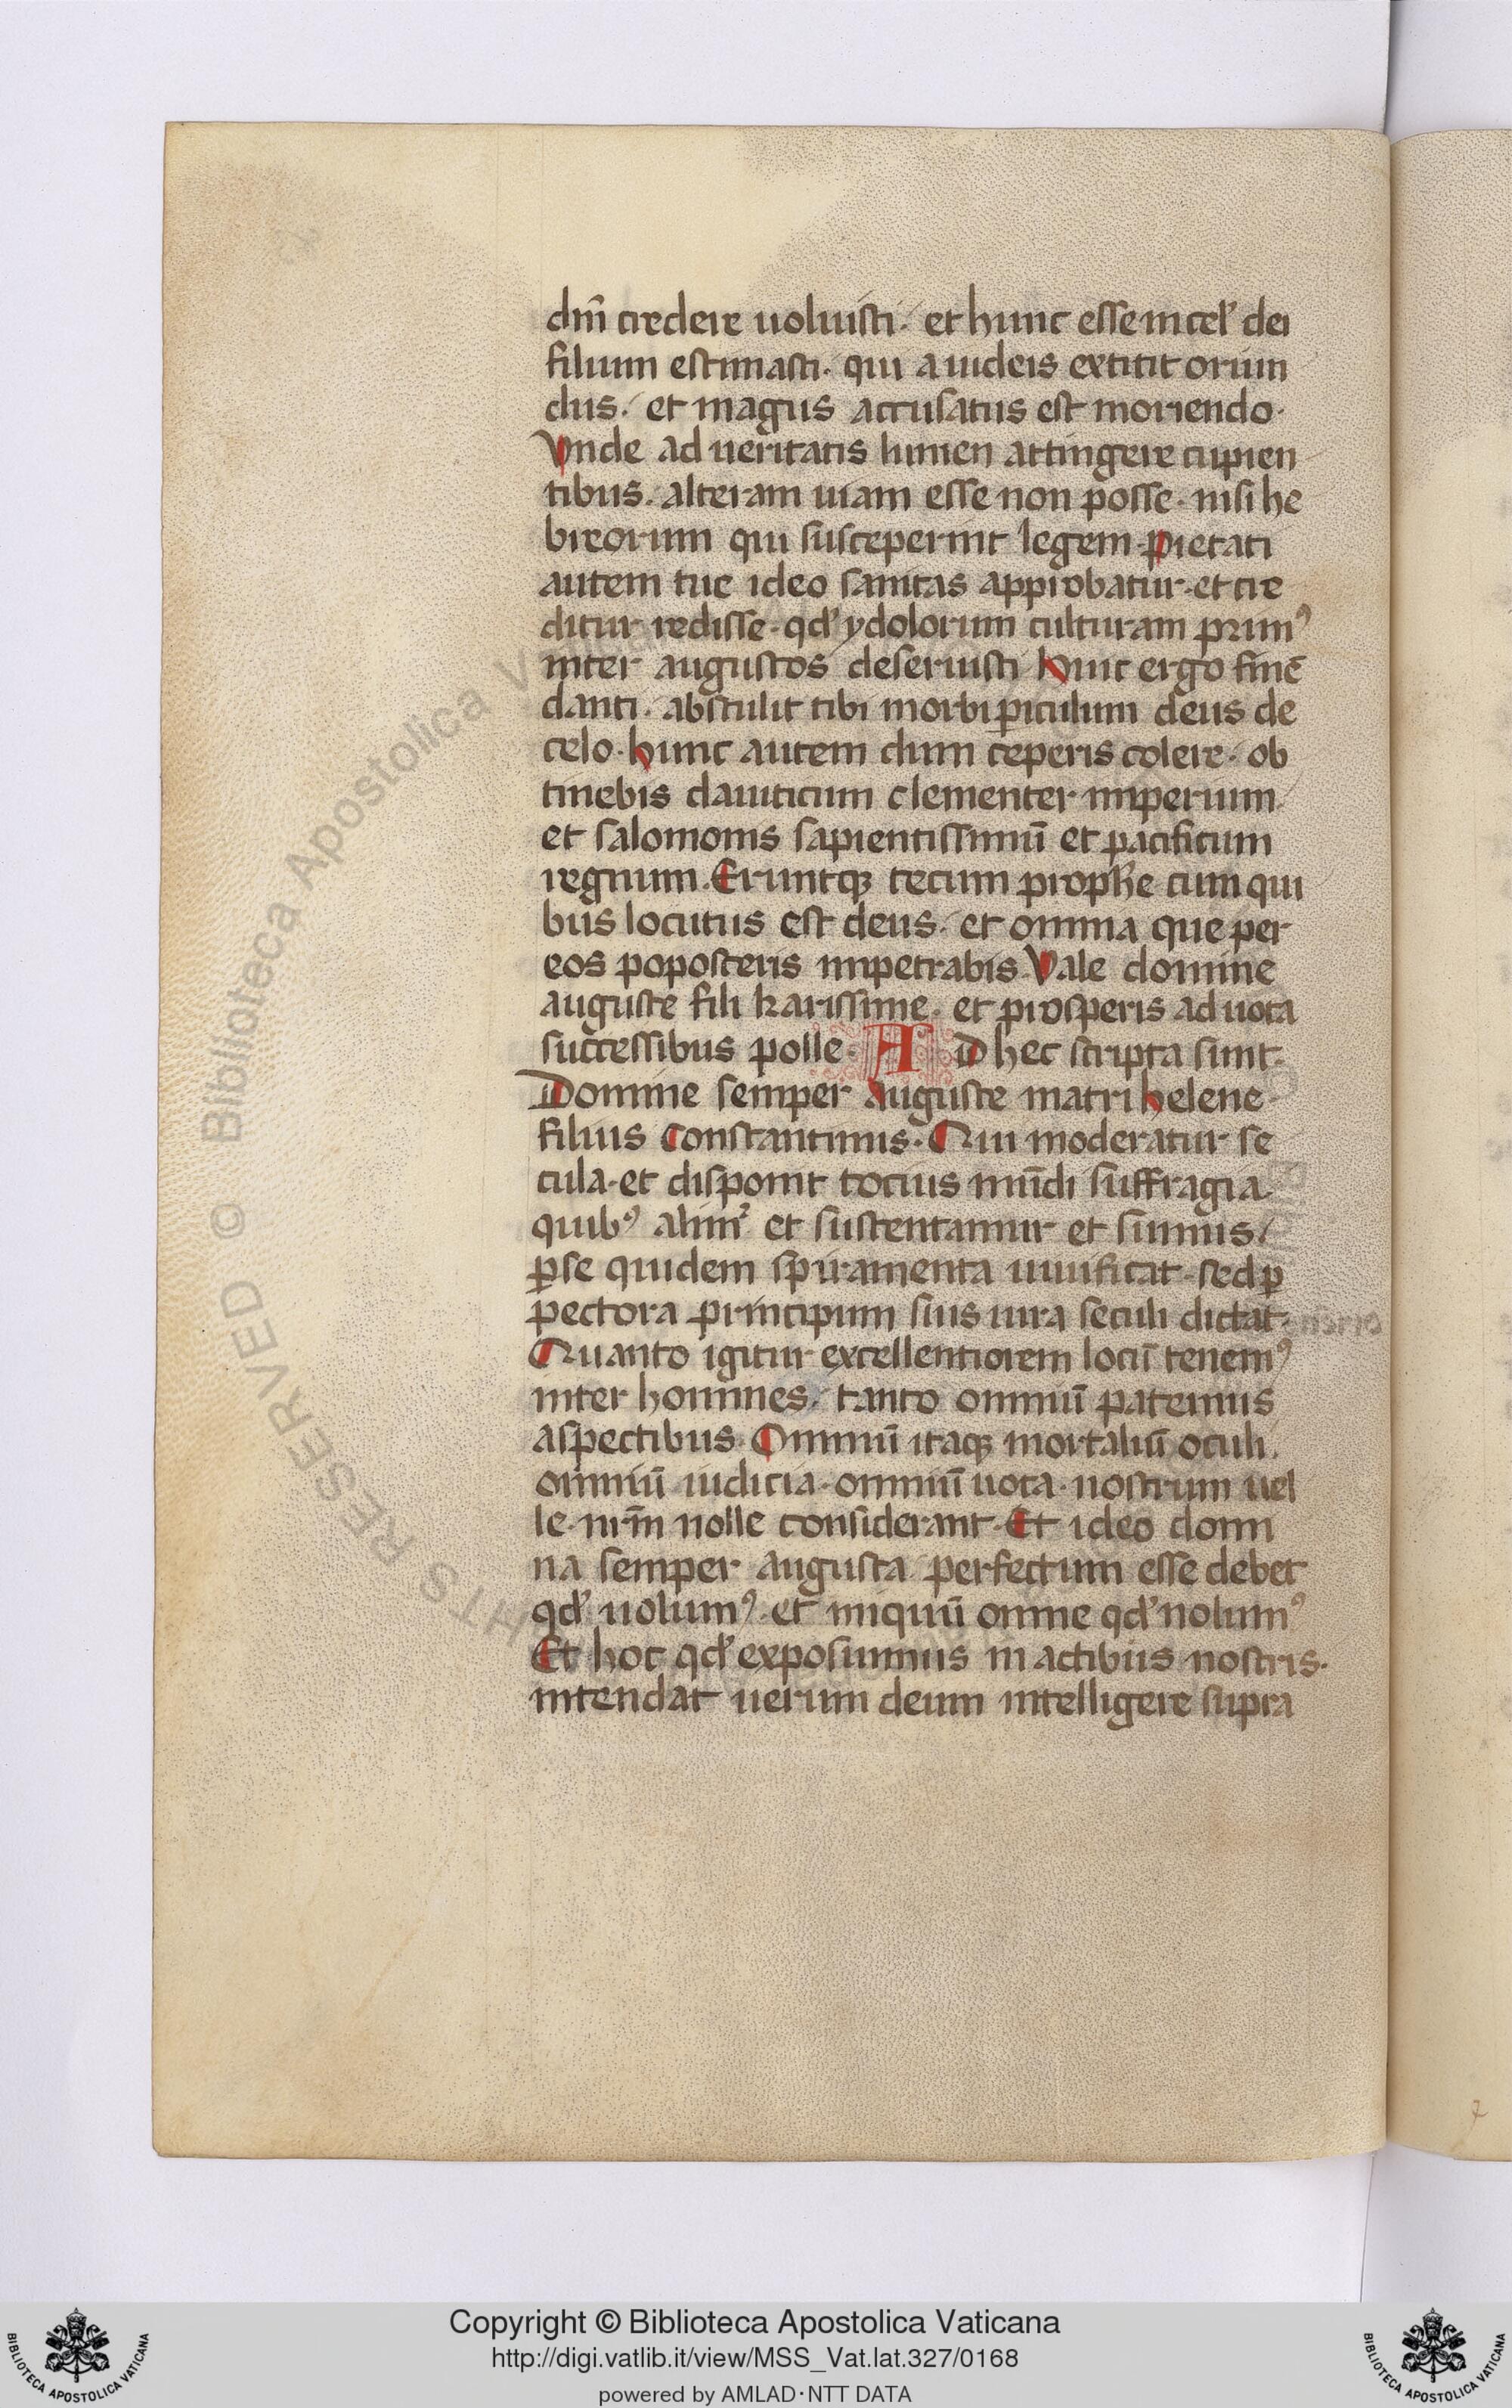 dm̄ credere uoluisti. et hunc esse in cel' dei
filium estimasti. qui a iudeis extitit oriun
dus. et magus accusatus est moriendo.
Vnde ad ueritatis lumen attingere cupien
tibus. alteram uiam esse non posse. nisi he
breorum qui susceperint legem. pietati
autem tue ideo sanitas approbatur. et cre
ditur redisse. qd' ydolorum culturam primꝰ
inter augustos deseruisti Huic ergo finē
danti. abstulit tibi morbi ꝑiculum deus de
celo. hunc autem dum ceperis colere. ob
tinebis dauiticum clementer imperium
et salomonis sapientissimū et pacificum
regnum. Eruntqꝫ tecum prophe cum qui
bus locutus est deus. et omnia que per
eos poposceris impetrabis. Vale domine
auguste fili karissime. et prosperis ad uota
successibus polle. AD hec scripta sunt.
Domine semper Auguste matri helene
filius Constantinus. Qui moderatur se
cula. et disponit tocius mūdi suffragia
quibꝰ alim᷑ et sustentamur et sumus
ꝑ se quidem spiramenta uiuificat. sed ꝑ
pectora principum suis iura seculi dictat.
Quanto igitur excellentiorem locū tenemꝰ
inter homines. tanto omniū patemus
aspectibus. Omniū itaqꝫ mortaliū oculi.
omniū iudicia. omniū uota. nostrum uel
le. nr̄m nolle considerant. Et ideo domi
na semper augusta perfectum esse debet
qd' uolumꝰ. et iniquū omne qd' nolumꝰ
Et hoc qd' exposuimus in actibus nostris.
intendat uerum deum intelligere supra
© Biblioteca Apostolica V
HTS RESERVED
Copyright © Biblioteca Apostolica Vaticana
http://digi.vatlib.it/view/MSS_Vat.lat.327/0168
powered by AMLAD·NTT DATA
BIBLIOTECA APOSTOLICA VATICANA
BIBLIOTECA APOSTOLICA VATICANA